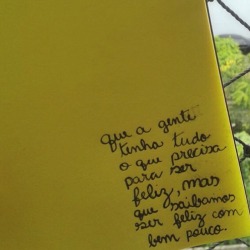 que a gente
tenha tudo
o que precisa
para ser
feliz, mas
que saibamos
ser feliz com
bem pouco.